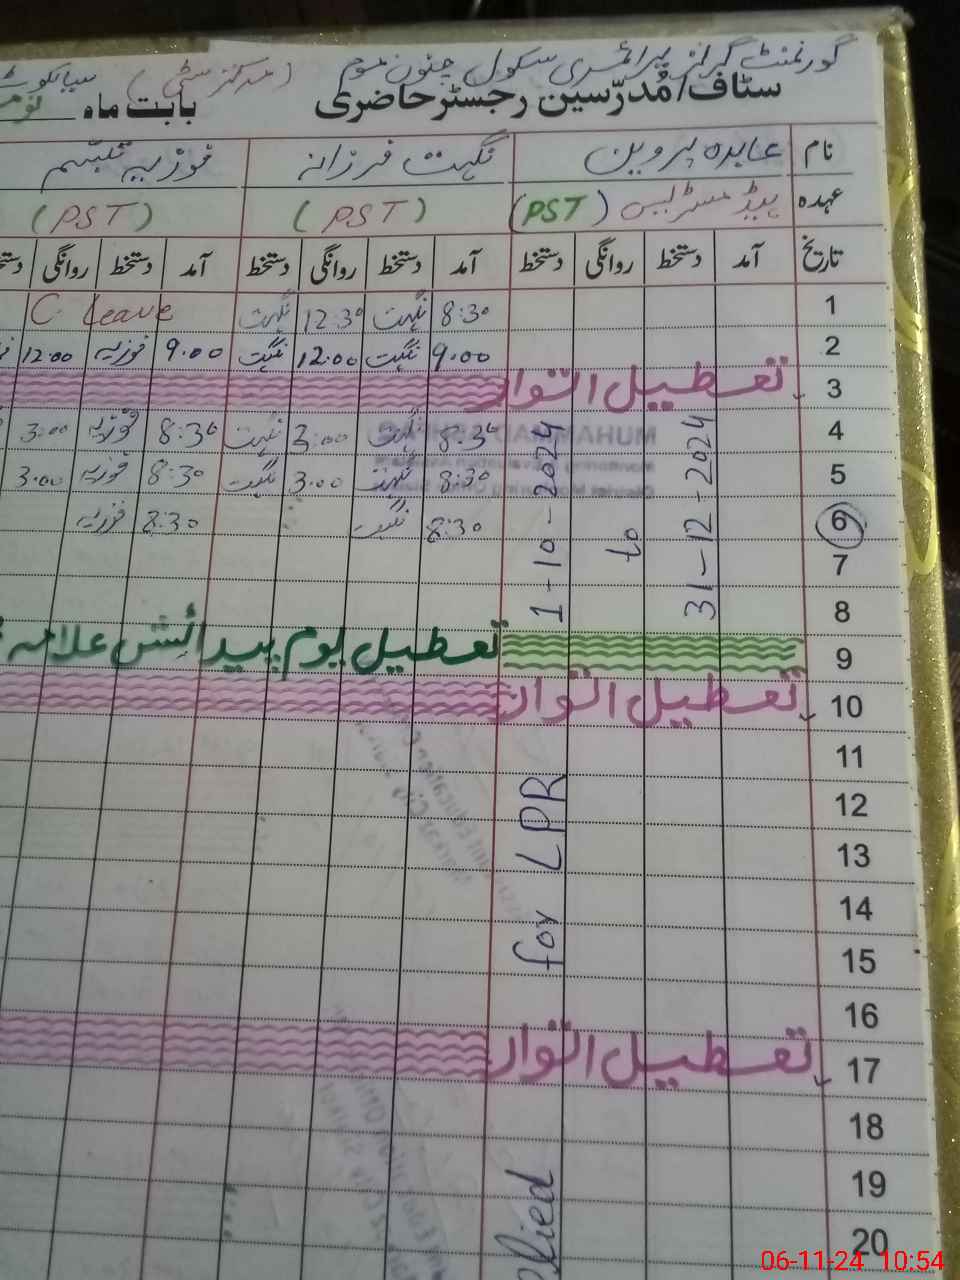 گورنمنٹ گرلز پرائمری سکول چنون موم (مرکز سٹی) سیالکوٹ
سٹاف/مُدرّسین رجسٹر حاضری بابت ماہ
نام عابدہ پروین نگہت فرزانہ فوزیہ تبسم
عہدہ ہیڈ مسٹریس (PST) (PST) (PST)
تاریخ آمد دستخط روانگی دستخط آمد دستخط روانگی دستخط آمد دستخط روانگی
1 8:30 نگہت 12:30 نگہت C. Leave
2 9:00 نگہت 12:00 نگہت 9:00 فوزیہ 12:00
3 تعطیل اتوار
4 8:30 نگہت 3:00 نگہت 8:30 فوزیہ 3:00
5 8:30 نگہت 3:00 نگہت 8:30 فوزیہ 3:00
6 8:30 نگہت 8:30 فوزیہ
7
8
9 تعطیل یوم پیدائش علامہ
10 تعطیل اتوار
11
12
13
14
15
16
17 تعطیل اتوار
18
19
20
for LPR
1-10-2024
to
31-12-2024
06-11-24 10:54